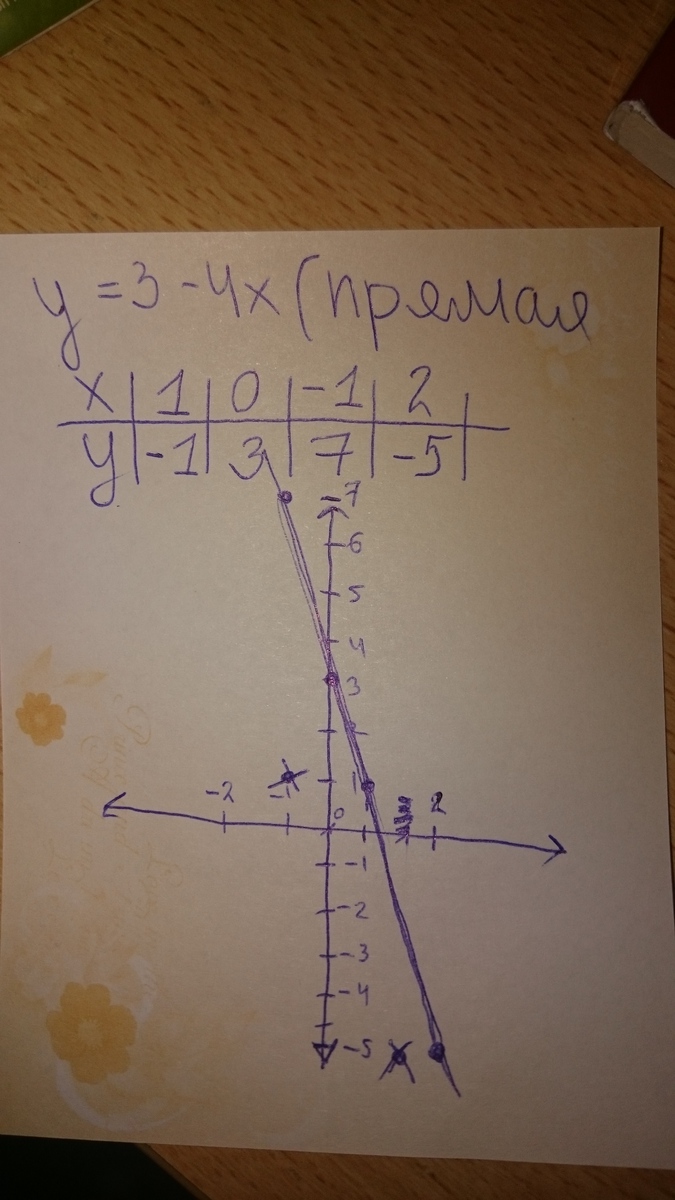 y = 3 - 4x (прямая
x | 1 | 0 | -1 | 2 |
y | -1 | 3 | 7 | -5 |
-7
6
5
4
3
1
-2 -1 0 1 2
-1
-2
-3
-4
-5